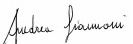 Andrea Giannoni